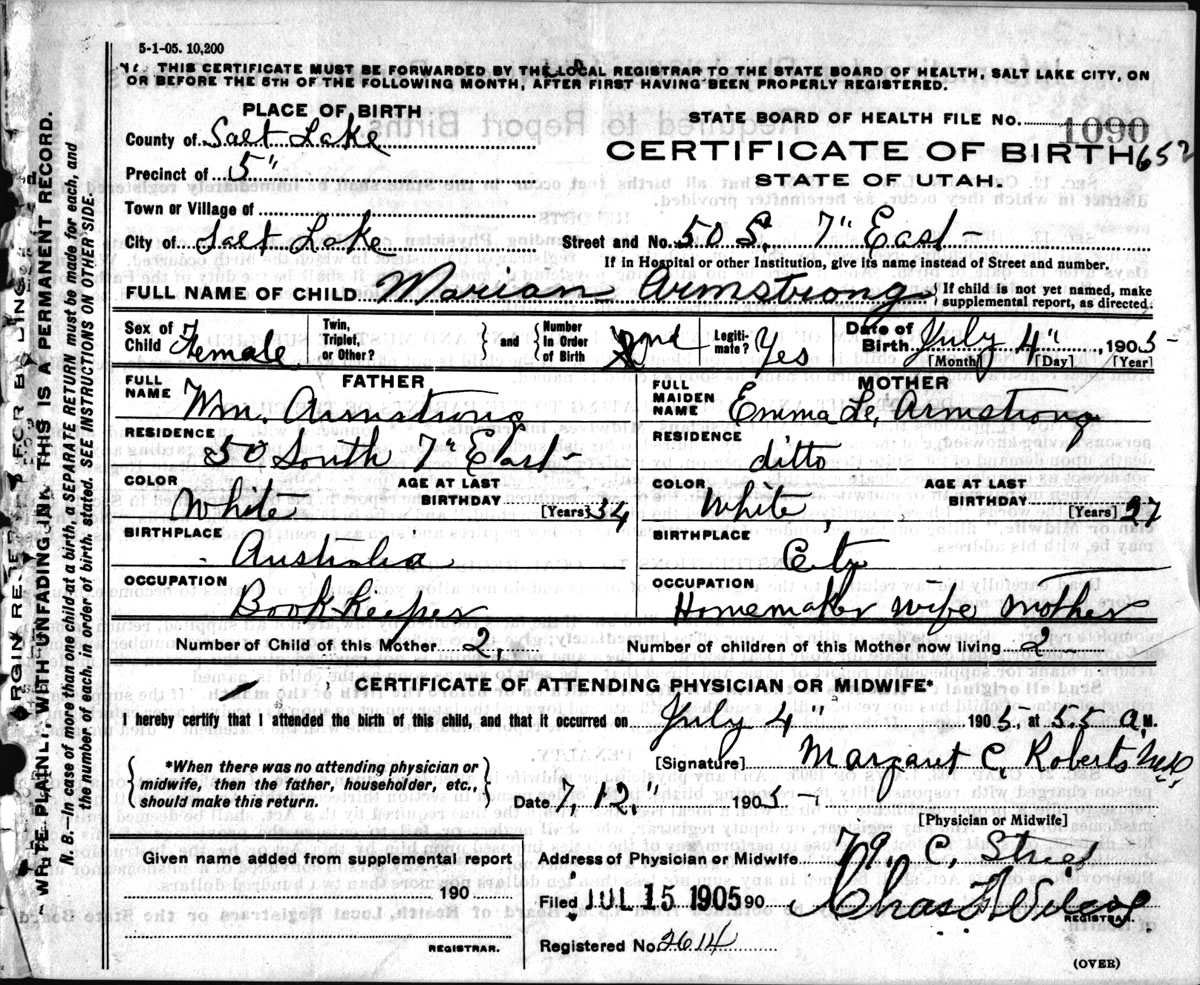 5-1-05. 10,200
THIS CERTIFICATE MUST BE FORWARDED BY THE LOCAL REGISTRAR TO THE STATE BOARD OF HEALTH, SALT LAKE CITY, ON
OR BEFORE THE 5TH OF THE FOLLOWING MONTH, AFTER FIRST HAVING BEEN PROPERLY REGISTERED.
PLACE OF BIRTH
County of Salt Lake
Precinct of 5"
Town or Village of
City of Salt Lake
STATE BOARD OF HEALTH FILE NO. 1090
652
CERTIFICATE OF BIRTH
STATE OF UTAH.
Street and No. 50 S. 7" East
If in Hospital or other Institution, give its name instead of Street and number.
FULL NAME OF CHILD Marian Armstrong { If child is not yet named, make
supplemental report, as directed.
Sex of Child Female Twin, Triplet, or Other? } and { Number in Order of Birth 2nd Legiti-mate? Yes Date of Birth July 4", 1905
[Month] [Day] [Year]
FATHER
FULL NAME Wm. Armstrong
RESIDENCE 50 South 7" East
COLOR White AGE AT LAST BIRTHDAY 34 [Years]
BIRTHPLACE Australia
OCCUPATION Book Keeper
MOTHER
FULL MAIDEN NAME Emma Le, Armstrong
RESIDENCE ditto
COLOR White, AGE AT LAST BIRTHDAY 27 [Years]
BIRTHPLACE City
OCCUPATION Homemaker wife mother
Number of Child of this Mother 2, Number of children of this Mother now living 2
CERTIFICATE OF ATTENDING PHYSICIAN OR MIDWIFE*
I hereby certify that I attended the birth of this child, and that it occurred on July 4" 1905, at 5.55 A.M.
{ *When there was no attending physician or
midwife, then the father, householder, etc.,
should make this return. }
[Signature] Margaret C. Roberts
Date 7, 12." 1905
[Physician or Midwife]
Given name added from supplemental report
190
REGISTRAR.
Address of Physician or Midwife 79. C. Street
Filed JUL 15 1905 90 Chas
REGISTRAR.
Registered No. 2614
(OVER)
WRITE PLAINLY, WITH UNFADING INK. THIS IS A PERMANENT RECORD.
N. B.—In case of more than one child at a birth, a SEPARATE RETURN must be made for each, and
the number of each, in order of birth, stated. SEE INSTRUCTIONS ON OTHER SIDE.